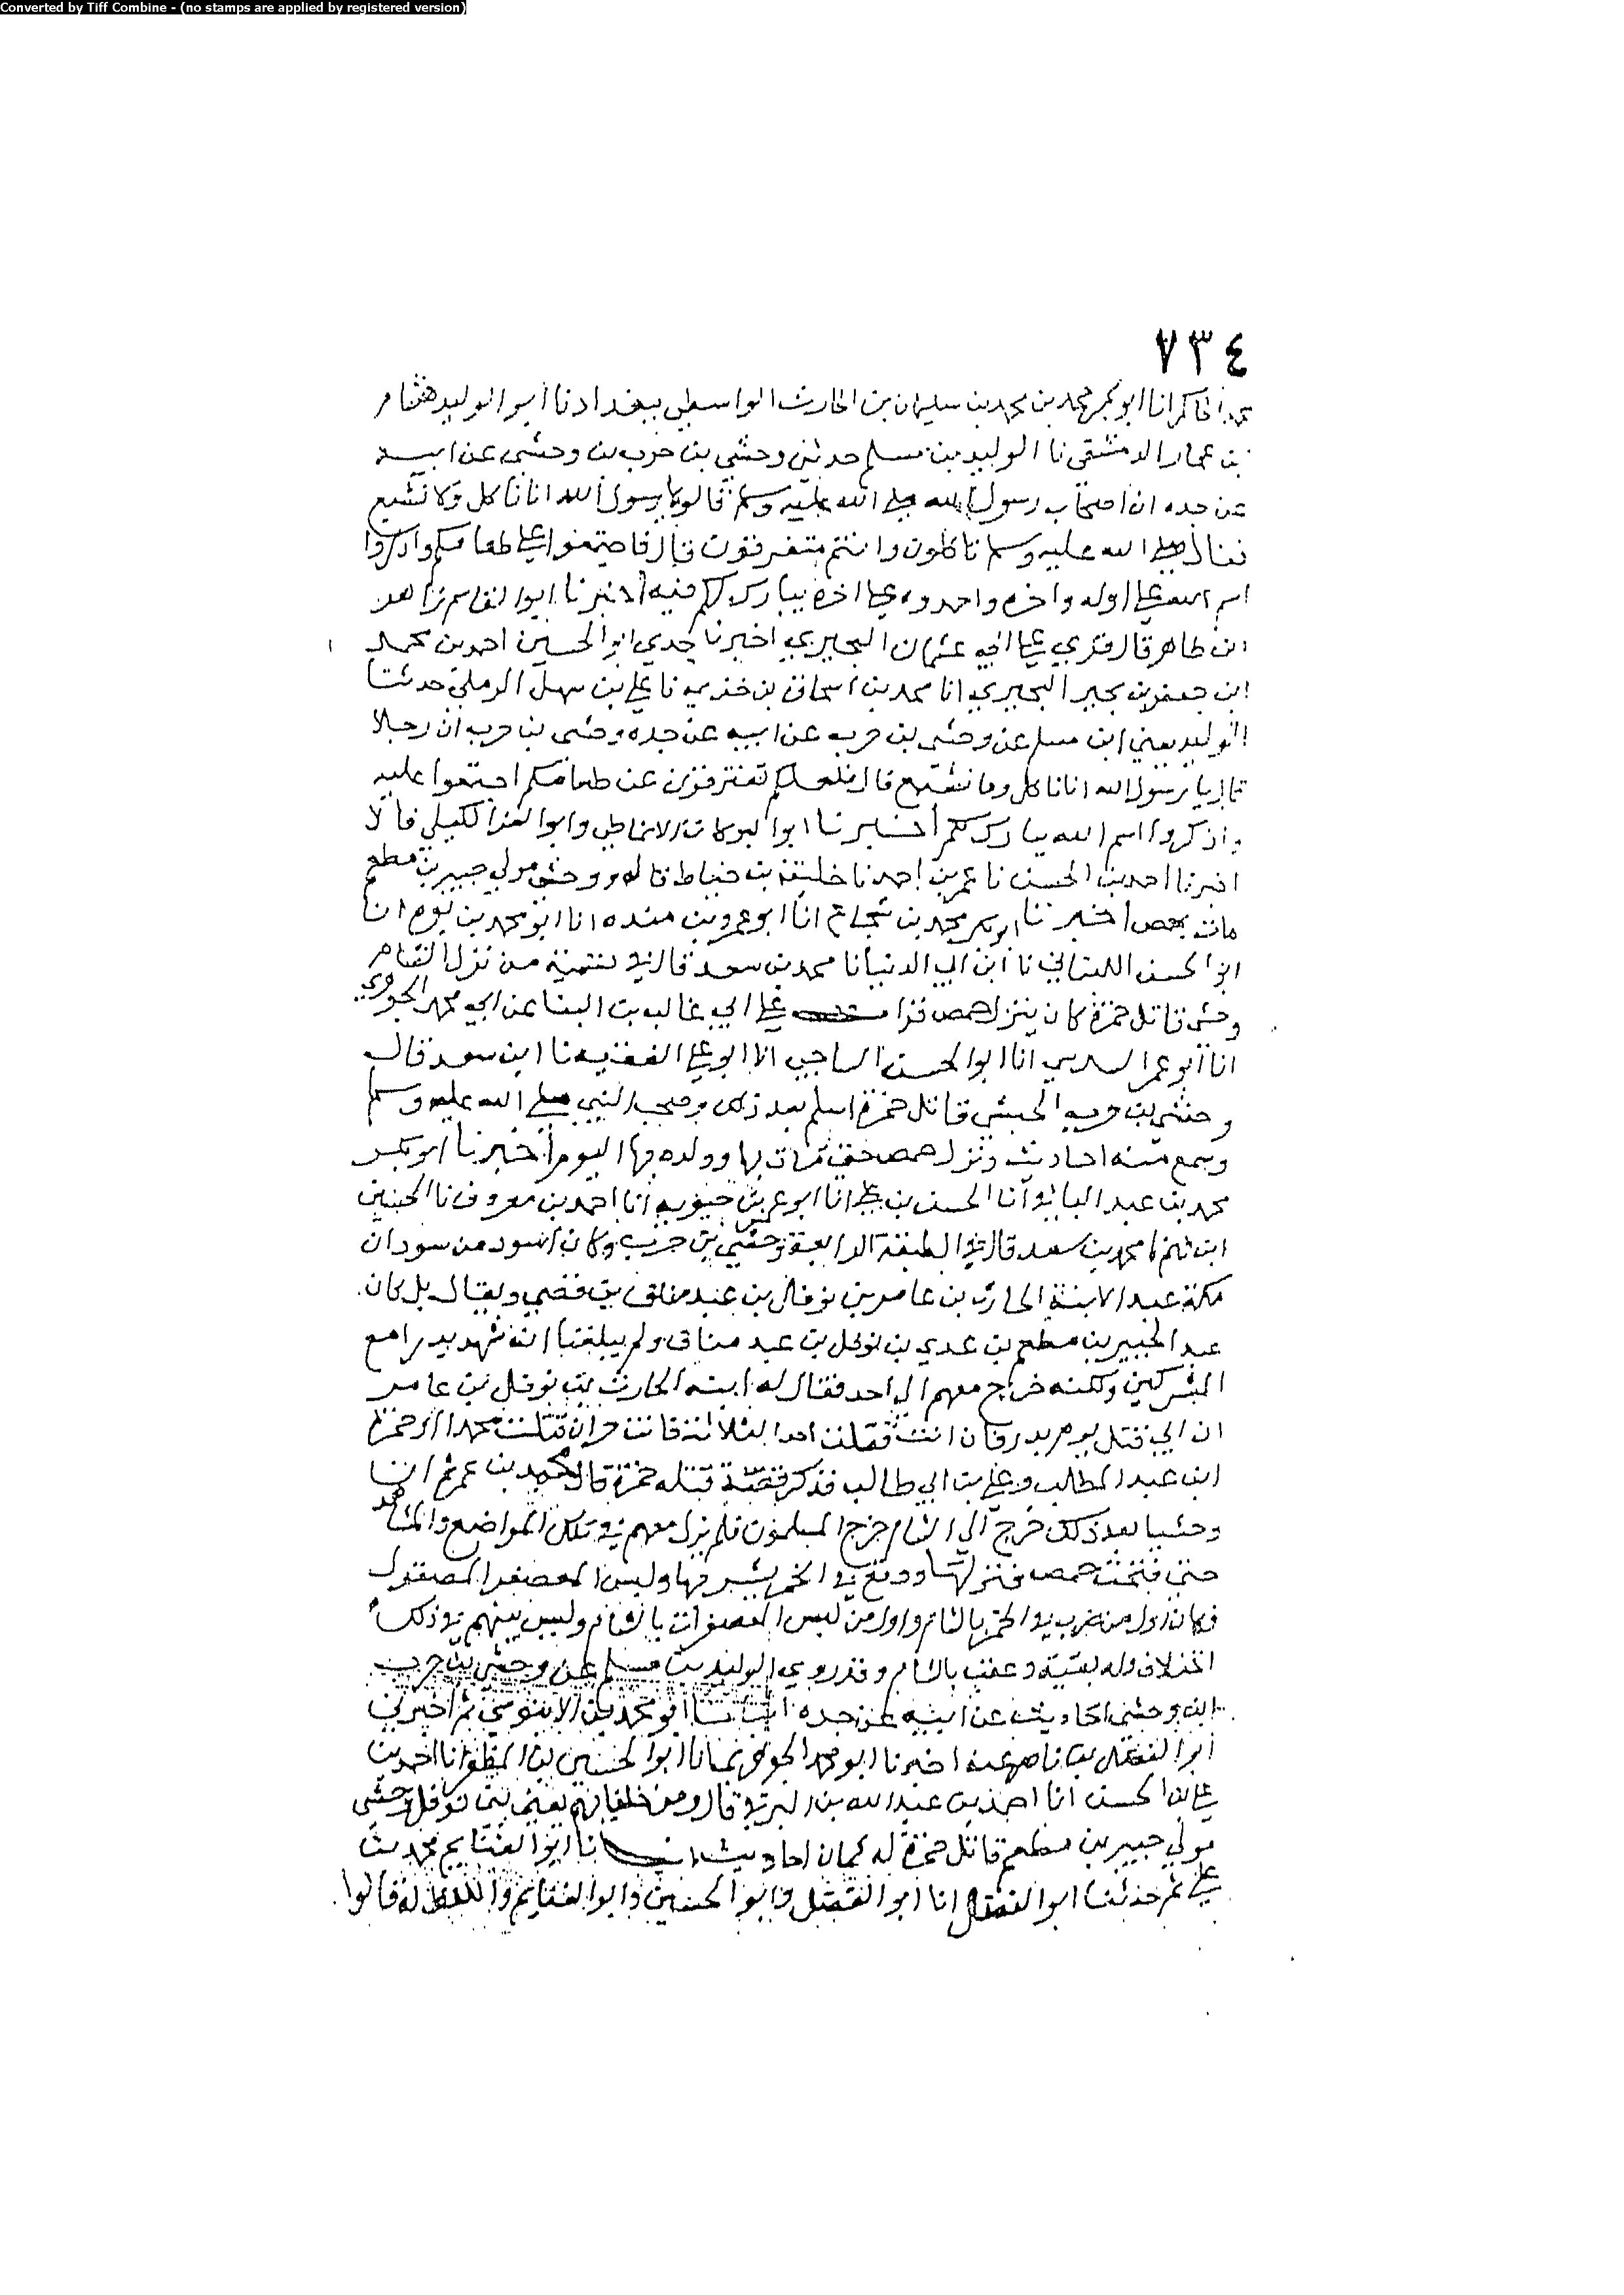 Converted by Tiff Combine - (no stamps are applied by registered version)
٧٣٤
محمد الحاكم انا ابو بكر محمد بن محمد بن سليمان بن الحارث الواسطي ببغداد نا ابو الوليد هشام
بن عمار الدمشقي نا الوليد بن مسلم حدثني وحشي بن حرب بن وحشي عن ابيه
عن جده ان اصحاب رسول الله صلى الله عليه وسلم قالوا يا رسول الله انا ناكل ولا نشبع
فقال صلى الله عليه وسلم تاكلون وانتم متفرقون قال فاجتمعوا على طعامكم واذكروا
اسم الله على اوله واخره يبارك لكم فيه اخبرنا ابو القاسم زاهر
ابن طاهر قال قري على ابي عثمان البحيري اخبرنا جدي ابو الحسين احمد بن محمد
ابن جعفر بن بحير البحيري انا محمد بن اسحاق بن خزيمه نا علي بن سهل الرملي حدثنا
الوليد يعني ابن مسلم عن وحشي بن حرب عن ابيه عن جده وحشي بن حرب ان رجلا
قال يا رسول الله انا ناكل وما نشبع قال فلعلكم تفترقون عن طعامكم اجتمعوا عليه
واذكروا اسم الله يبارك لكم اخبرنا ابو البركات الانماطي وابو العز الكيلي قالا
اخبرنا احمد بن الحسن نا عمر بن احمد نا خليفة بن خياط قال وحشي مولى جبير بن مطعم
مات بحمص اخبرنا ابو بكر محمد بن شجاع انا ابو عمرو بن منده انا ابو محمد بن يوه انا
ابو الحسن اللبناني نا ابن ابي الدنيا نا محمد بن سعد قال في تسمية من نزل الشام
وحشي قاتل حمزة كان ينزل حمص قرات على ابي غالب بن البنا عن ابي محمد الجوهري
انا ابو عمر انا ابو الحسن انا ابو علي الفقيه نا ابن سعد قال
وحشي بن حرب الحبشي قاتل حمزة اسلم بعد ذلك وصحب النبي صلى الله عليه وسلم
وسمع منه احاديث ونزل حمص حتى مات بها وولده بها اليوم اخبرنا ابو بكر
محمد بن عبد الباقي انا الحسن بن علي انا ابو عمر بن حيويه انا احمد بن معروف نا الحسين
ابن فهم نا محمد بن سعد قال في الطبقة الرابعة وحشي بن حرب وكان اسود من سودان
مكة عبد لابنة الحارث بن عامر بن نوفل بن عبد مناف بن قصي ويقال بل كان
عبد الجبير بن مطعم بن عدي بن نوفل بن عبد مناف ولم يبلغنا انه شهد بدرا مع
المشركين ولكنه خرج معهم الى احد فقال له ابنة الحارث بن نوفل بن عامر
ان ابي قتل يوم بدر فان انت قتلت احد الثلاثة فانت حر ان قتلت محمدا او حمزة
ابن عبد المطلب وعلي بن ابي طالب فذكر قصة قتله حمزة قال محمد بن عمر ثم ان
وحشيا بعد ذلك خرج الى الشام خرج المسلمون فلم يزل معهم في تلك المواضع والمشاهد
حتى فتحت حمص فنزلها ووقع في الخمر يشربها ولبس المعصفر المصقول
فكان اول من ضرب في الخمر بالشام واول من لبس المعصفرات بالشام وليس بينهم في ذلك
اختلاف وله بقية وعقب بالشام وقد روى الوليد بن مسلم عن وحشي بن حرب
ابن وحشي احاديث عن ابيه عن جده انبانا ابو محمد بن الابنوسي ثم اخبرني
ابو الفضل بن ناصر عنه اخبرنا ابو محمد الجوهري انا ابو الحسين بن المظفر انا احمد بن
علي بن الحسن انا احمد بن عبد الله بن البرقي قال ومن حلفايهم يعني بني نوفل وحشي
مولى جبير بن مطعم قاتل حمزة له ثمان احاديث انبانا ابو الغنايم محمد بن
علي ثم حدثنا ابو الفضل انا ابو الفضل وابو الحسين وابو الغنايم واللفظ له قالوا